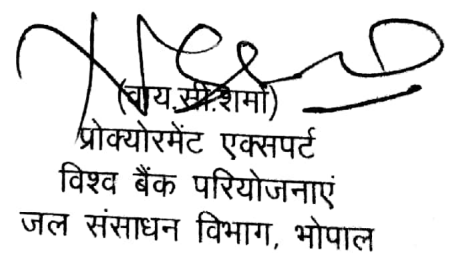 (वाय.सी.शर्मा)
प्रोक्योरमेंट एक्सपर्ट
विश्व बैंक परियोजनाएं
जल संसाधन विभाग, भोपाल